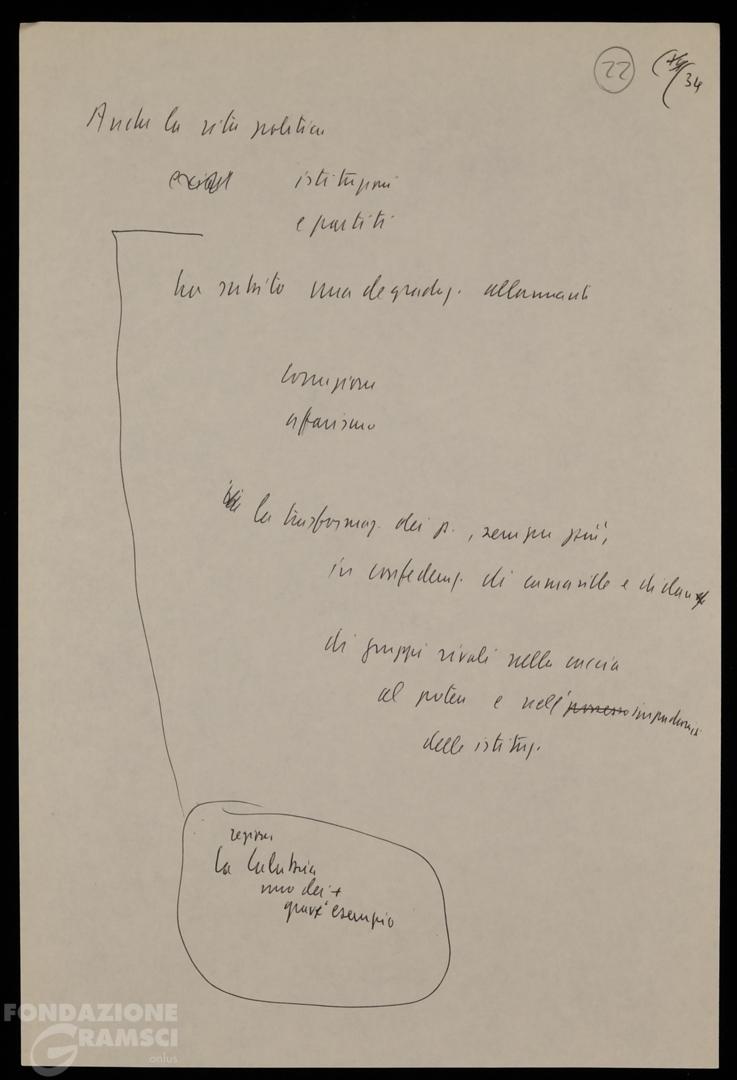 22
34
Anche la vita politica
istituzioni
e partiti
ha subìto una degradaz. allarmante
corruzione
affarismo
la trasformaz. dei p., sempre più,
in confederaz. di camarille e di clan
di gruppi rivali nella caccia
al potere e nell'impadronirsi
delle istituz.
regione
la Calabria
uno dei +
gravi esempio
FONDAZIONE
GRAMSCI
onlus